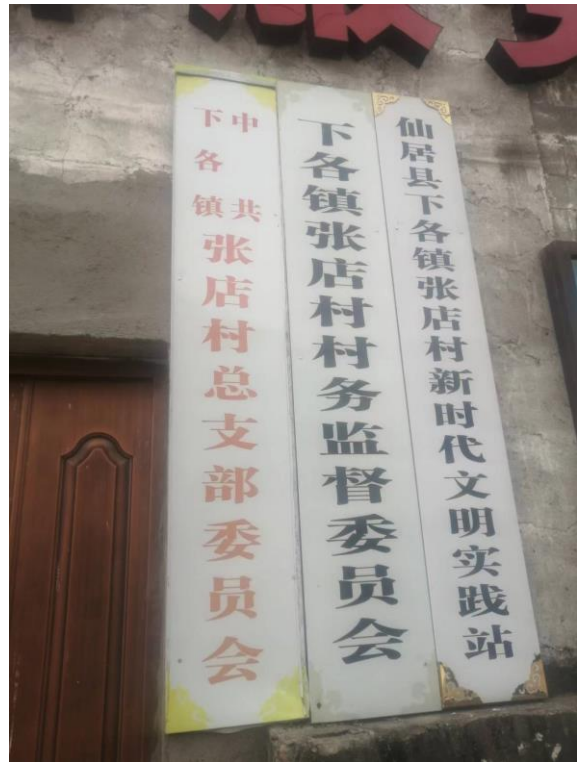 中共下各镇张店村总支部委员会
下各镇张店村村务监督委员会
仙居县下各镇张店村新时代文明实践站